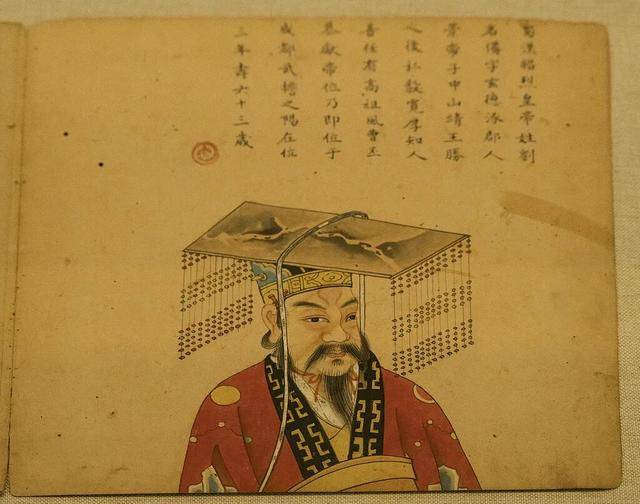 蜀漢昭烈皇帝姓劉
名備字玄德涿郡人
景帝子中山靖王勝
之後弘毅寬厚知人
善任有高祖風曹丕
篡獻帝位乃即位于
成都武擔之陽在位
三年壽六十三歲